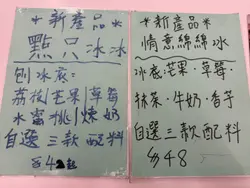 *新產品*
點只冰冰
刨冰底:
荔枝芒果草莓
水蜜桃煉奶
自選三款配料
$42起
*新產品*
情意綿綿冰
冰底:芒果·草莓·
抹茶·牛奶·香芋
自選三款配料
$48